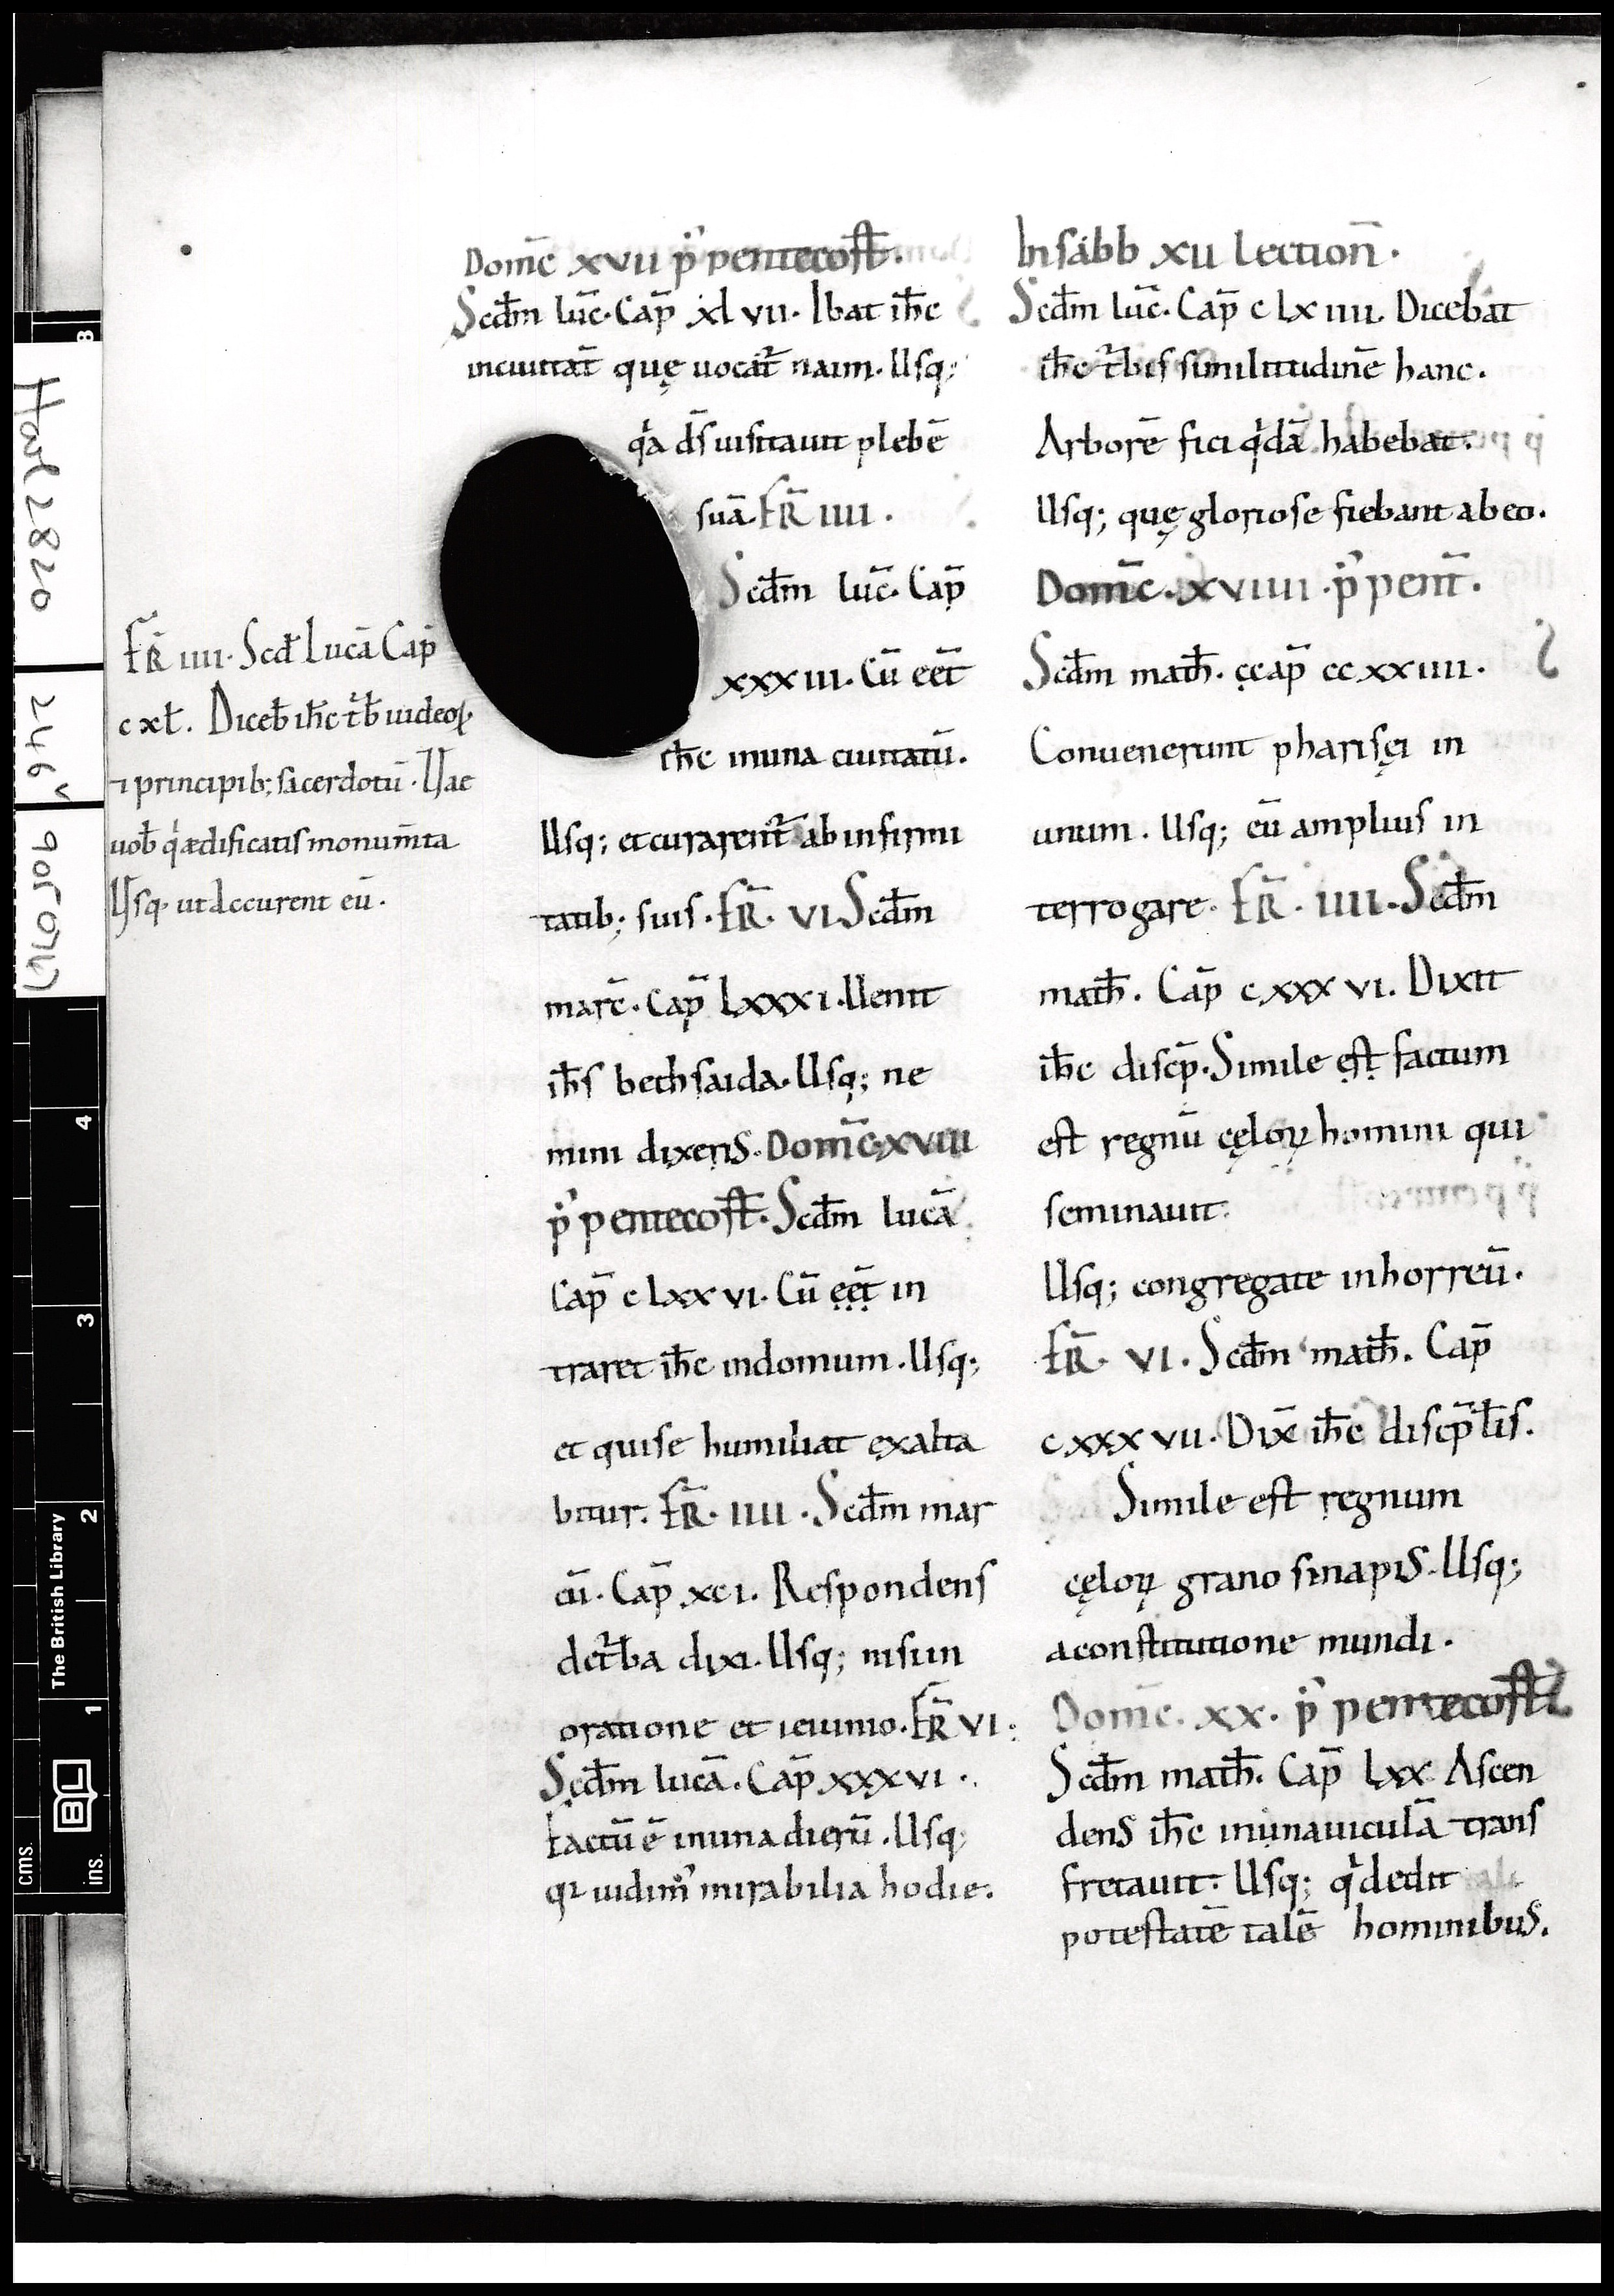 Domc̄ xvii p̄ pentecost̄.
Scdm̄ luc̄. Cap̄ xlvii. Ibat ihc̄
inciuitat̄ quę uocat̄ naim. Usq;
qa ds̄ uisitauit plebē
suā. FR̄ IIII.
Scdm̄ luc̄. Cap̄
xxxiii. Cū eēt
ihc̄ inuna ciuitatū.
Usq; et curarent̄ ab infirmi
tatib; suis. FR̄. VI Scdm̄
marc̄. Cap̄ lxxxi. Uenit
ihs̄ bethsaida. Usq; ne
mini dixeris. Domc̄. xviii
p̄ pentecost̄. Scdm̄ lucā
Cap̄ clxxvi. Cū ęęt̄ in
traret ihc̄ indomum. Usq;
et quise humiliat exalta
bitur. FR̄. IIII. Scdm̄ mar
cū. Cap̄ xci. Respondens
det̄ba dixi. Usq; nisiin
oratione et ieiunio. FR̄ VI.
Scdm̄ lucā. Cap̄ xxxvi.
Factū ē inuna dierū. Usq;
qr uidim' mirabilia hodie.
FR̄ IIII. Scd̄ Lucā Cap̄
cxl. Diceb̄ ihc̄ t̄b iudeoꝝ
⁊ principib; sacerdotū. Uae
uob̄ qi ædificatis monum̄ta
Usq. ut docurent eū.
In sabb xii lection̄.
Scdm̄ luc̄. Cap̄ clxiiii. Dicebat
ihc̄ t̄bis similitudinē hanc.
Arborē fici qdā habebat.
Usq; quę gloriose fiebant abeo.
Domc̄. xviiii. p̄ pent̄.
Scdm̄ math̄. ccap̄ ccxxiiii.
Conuenerunt pharisęi in
unum. Usq; eū amplius in
terrogare. FR̄. IIII. Scdm̄
math̄. Cap̄ cxxxvi. Dixit
ihc̄ discp̄. Simile est factum
est regnū cęloꝝ homini qui
seminauit.
Usq; congregate inhorreū.
FR̄. VI. Scdm̄ math̄. Cap̄
cxxxvii. Dix̄ ihc̄ discp̄lis.
Simile est regnum
cęloꝝ grano sinapis. Usq;
aconstitutione mundi.
Domc̄. xx. p̄ pentecost̄
Scdm̄ math̄. Cap̄ lxx Ascen
dens ihc̄ inunauiculā trans
fretauit. Usq; qi dedit
potestatē talē hominibus.
Harl 2820
246v
90507(4)
The British Library
BL
cms.
ins.
1
2
3
4